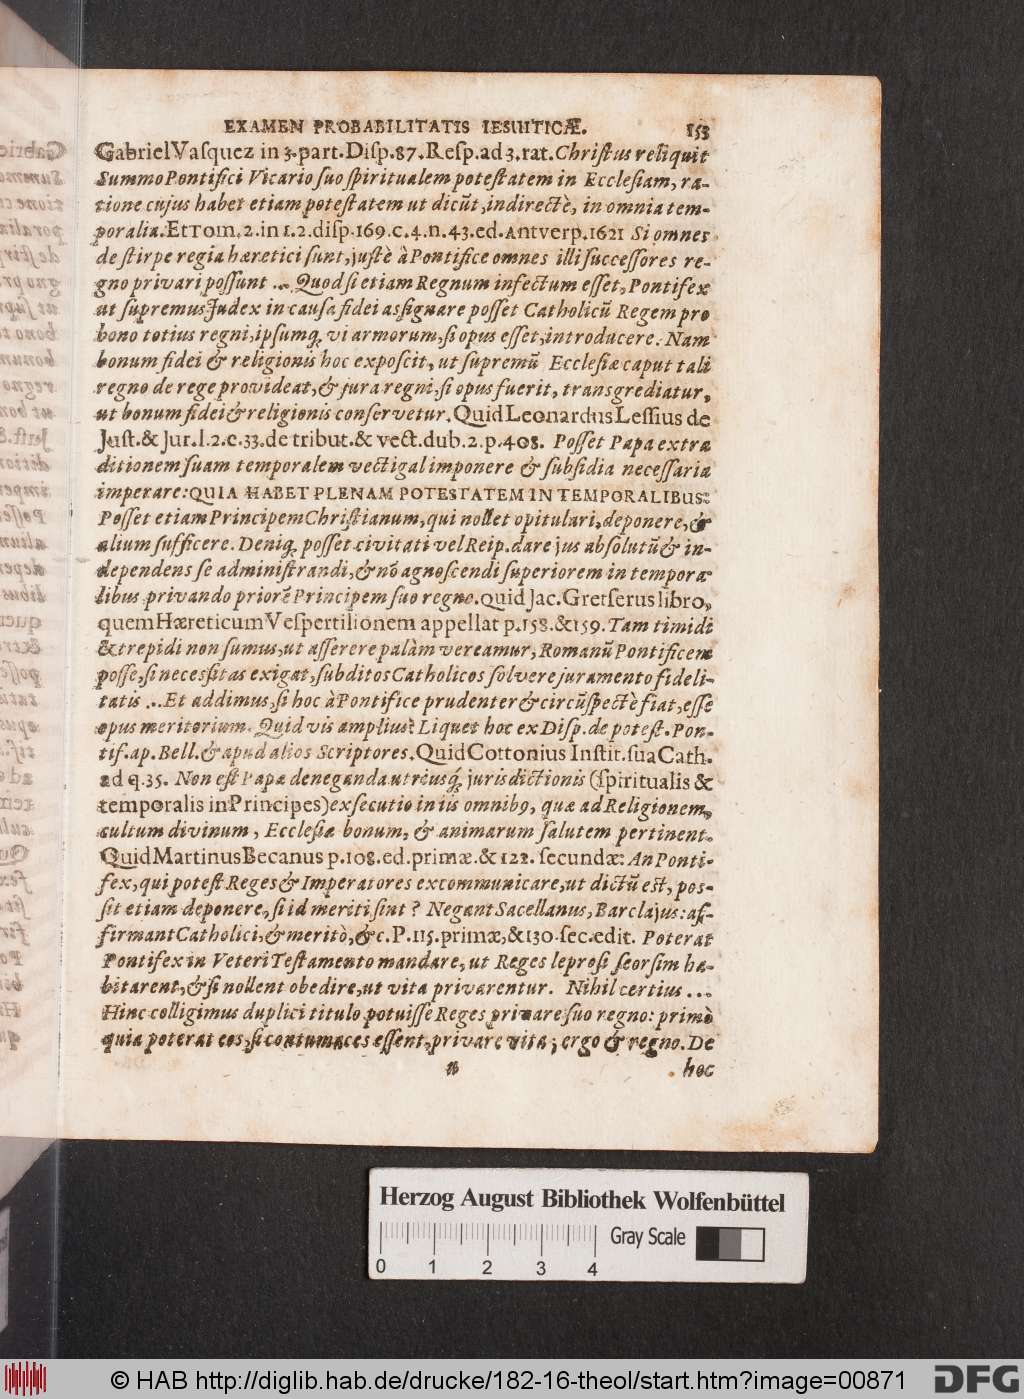 EXAMEN PROBABILITATIS IESUITICÆ. 153
Gabriel Vasquez in 3. part. Disp. 87. Resp. ad 3. rat. Christus reliquit
Summo Pontifici Vicario suo spiritualem potestatem in Ecclesiam, ra-
tione cujus habet etiam potestatem ut dicũt, indirectè, in omnia tem-
poralia. Et Tom. 2. in 1.2. disp. 169. c. 4. n. 43. ed. Antverp. 1621 Si omnes
de stirpe regia hæretici sunt, justè à Pontifice omnes illi successores re-
gno privari possunt ... Quod si etiam Regnum infectum esset, Pontifex
ut supremus Judex in causa fidei assignare posset Catholicũ Regem pro
bono totius regni, ipsumq́; vi armorum, si opus esset, introducere. Nam
bonum fidei & religionis hoc exposcit, ut supremũ Ecclesiæ caput tali
regno de rege provideat, & jura regni, si opus fuerit, transgrediatur,
ut bonum fidei & religionis conservetur. Quid Leonardus Lessius de
Just. & Jur. l. 2. c. 33. de tribut. & vect. dub. 2. p. 408. Posset Papa extra
ditionem suam temporalem vectigal imponere & subsidia necessaria
imperare: QUIA HABET PLENAM POTESTATEM IN TEMPORALIBUS:
Posset etiam Principem Christianum, qui nollet opitulari, deponere, &
alium sufficere. Deniq; posset civitati vel Reip. dare jus absolutũ & in-
dependens se administrandi, & nõ agnoscendi superiorem in tempora
libus privando priorẽ Principem suo regno. quid Jac. Gretserus libro,
quem Hæreticum Vespertilionem appellat p. 158. & 159. Tam timidi
& trepidi non sumus, ut asserere palàm vereamur, Romanũ Pontificem
posse, si necessitas exigat, subditos Catholicos solvere juramento fideli-
tatis ... Et addimus, si hoc à Pontifice prudenter & circũspectè fiat, esse
opus meritorium. Quid vis amplius? Liquet hoc ex Disp. de potest. Pon-
tif. ap. Bell. & apud alios Scriptores. Quid Cottonius Instit. sua Cath.
ad q. 35. Non est Papæ deneganda utriusq́; jurisdictionis (spiritualis &
temporalis in Principes) exsecutio in iis omnib9, quæ ad Religionem,
cultum divinum, Ecclesiæ bonum, & animarum salutem pertinent.
Quid Martinus Becanus p. 108. ed. primæ. & 122. secundæ: An Ponti-
fex, qui potest Reges & Imperatores excommunicare, ut dictũ est, pos-
sit etiam deponere, si id meriti sint? Negant Sacellanus, Barclajus: af-
firmant Catholici, & meritò, &c. P. 115. primæ, & 130. sec. edit. Poterat
Pontifex in Veteri Testamento mandare, ut Reges leprosi seorsim ha-
bitarent, & si nollent obedire, ut vita privarentur. Nihil certius ...
Hinc colligimus duplici titulo potuisse Reges privare suo regno: primò
quia poterat eos, si contumaces essent, privare vita; ergo & regno. De
hoc
Herzog August Bibliothek Wolfenbüttel
Gray Scale
0 1 2 3 4
© HAB http://diglib.hab.de/drucke/182-16-theol/start.htm?image=00871
DFG